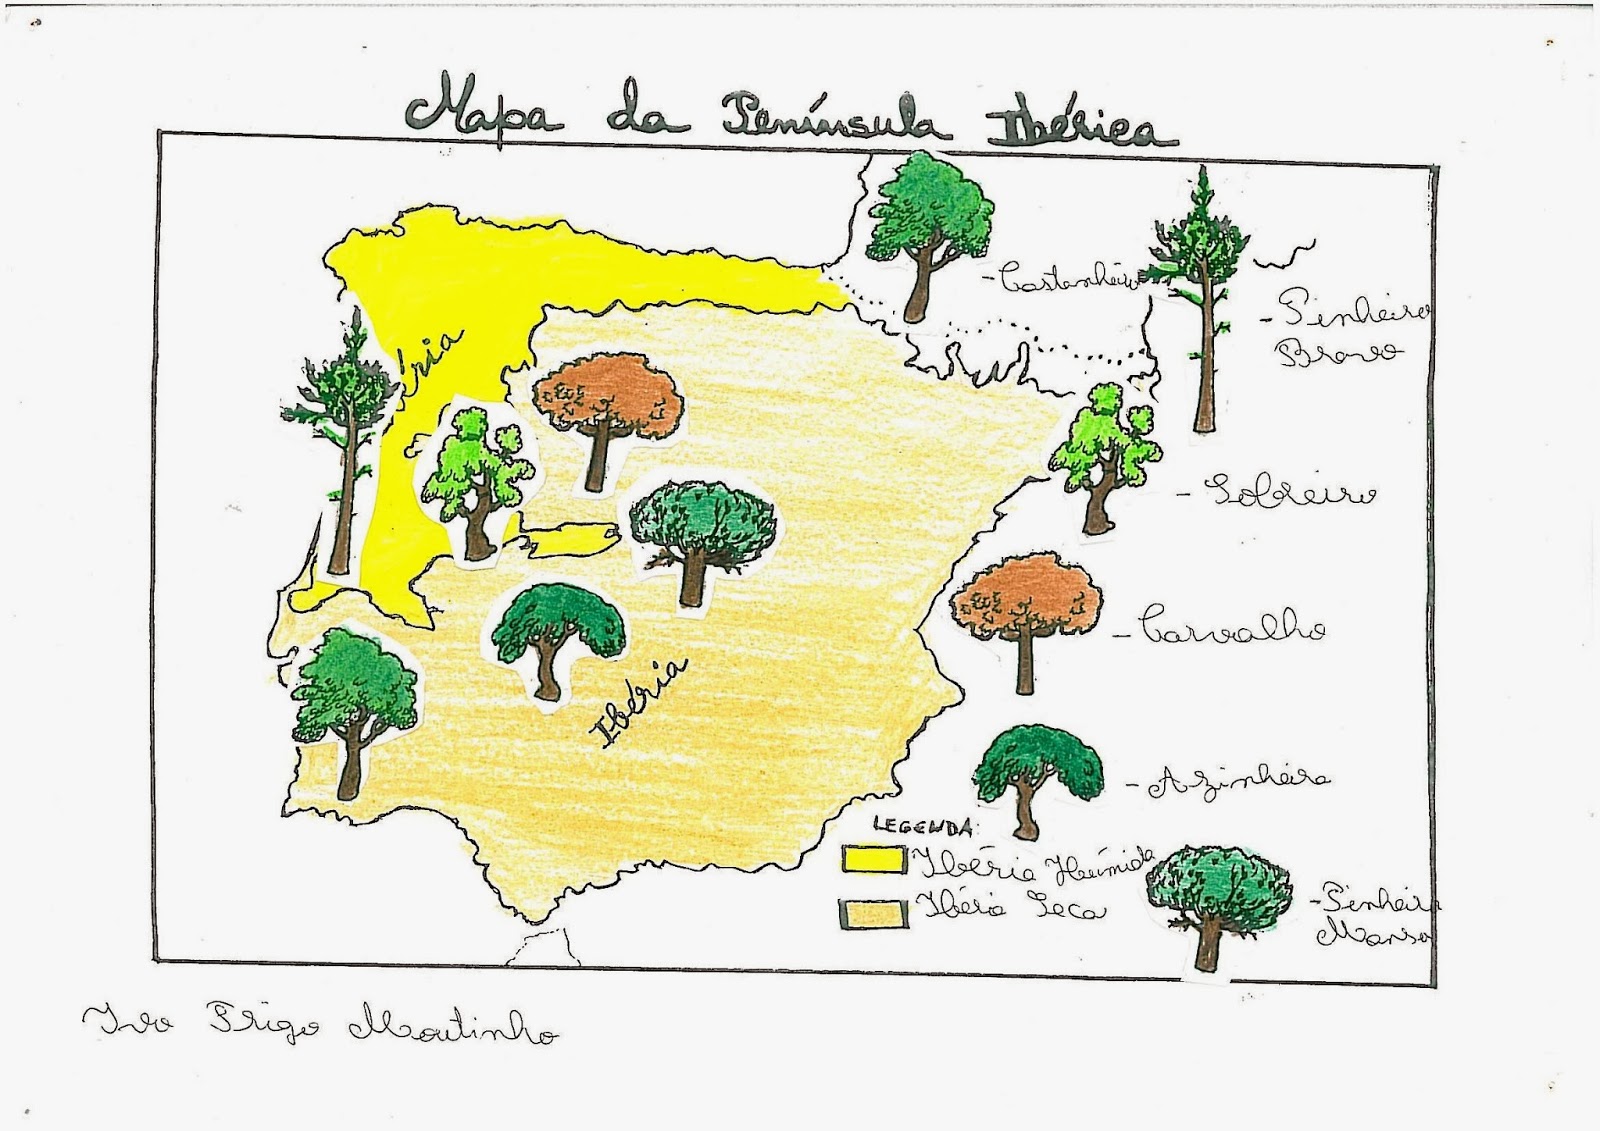 Mapa da Península Ibérica
- Castanheiro
- Pinheiro
Bravo
ria
- Sobreiro
- Carvalho
Ibéria
- Azinheira
LEGENDA:
Ibéria Húmida
Ibéria Seca
- Pinheiro
Manso
Ivo Trigo Moutinho